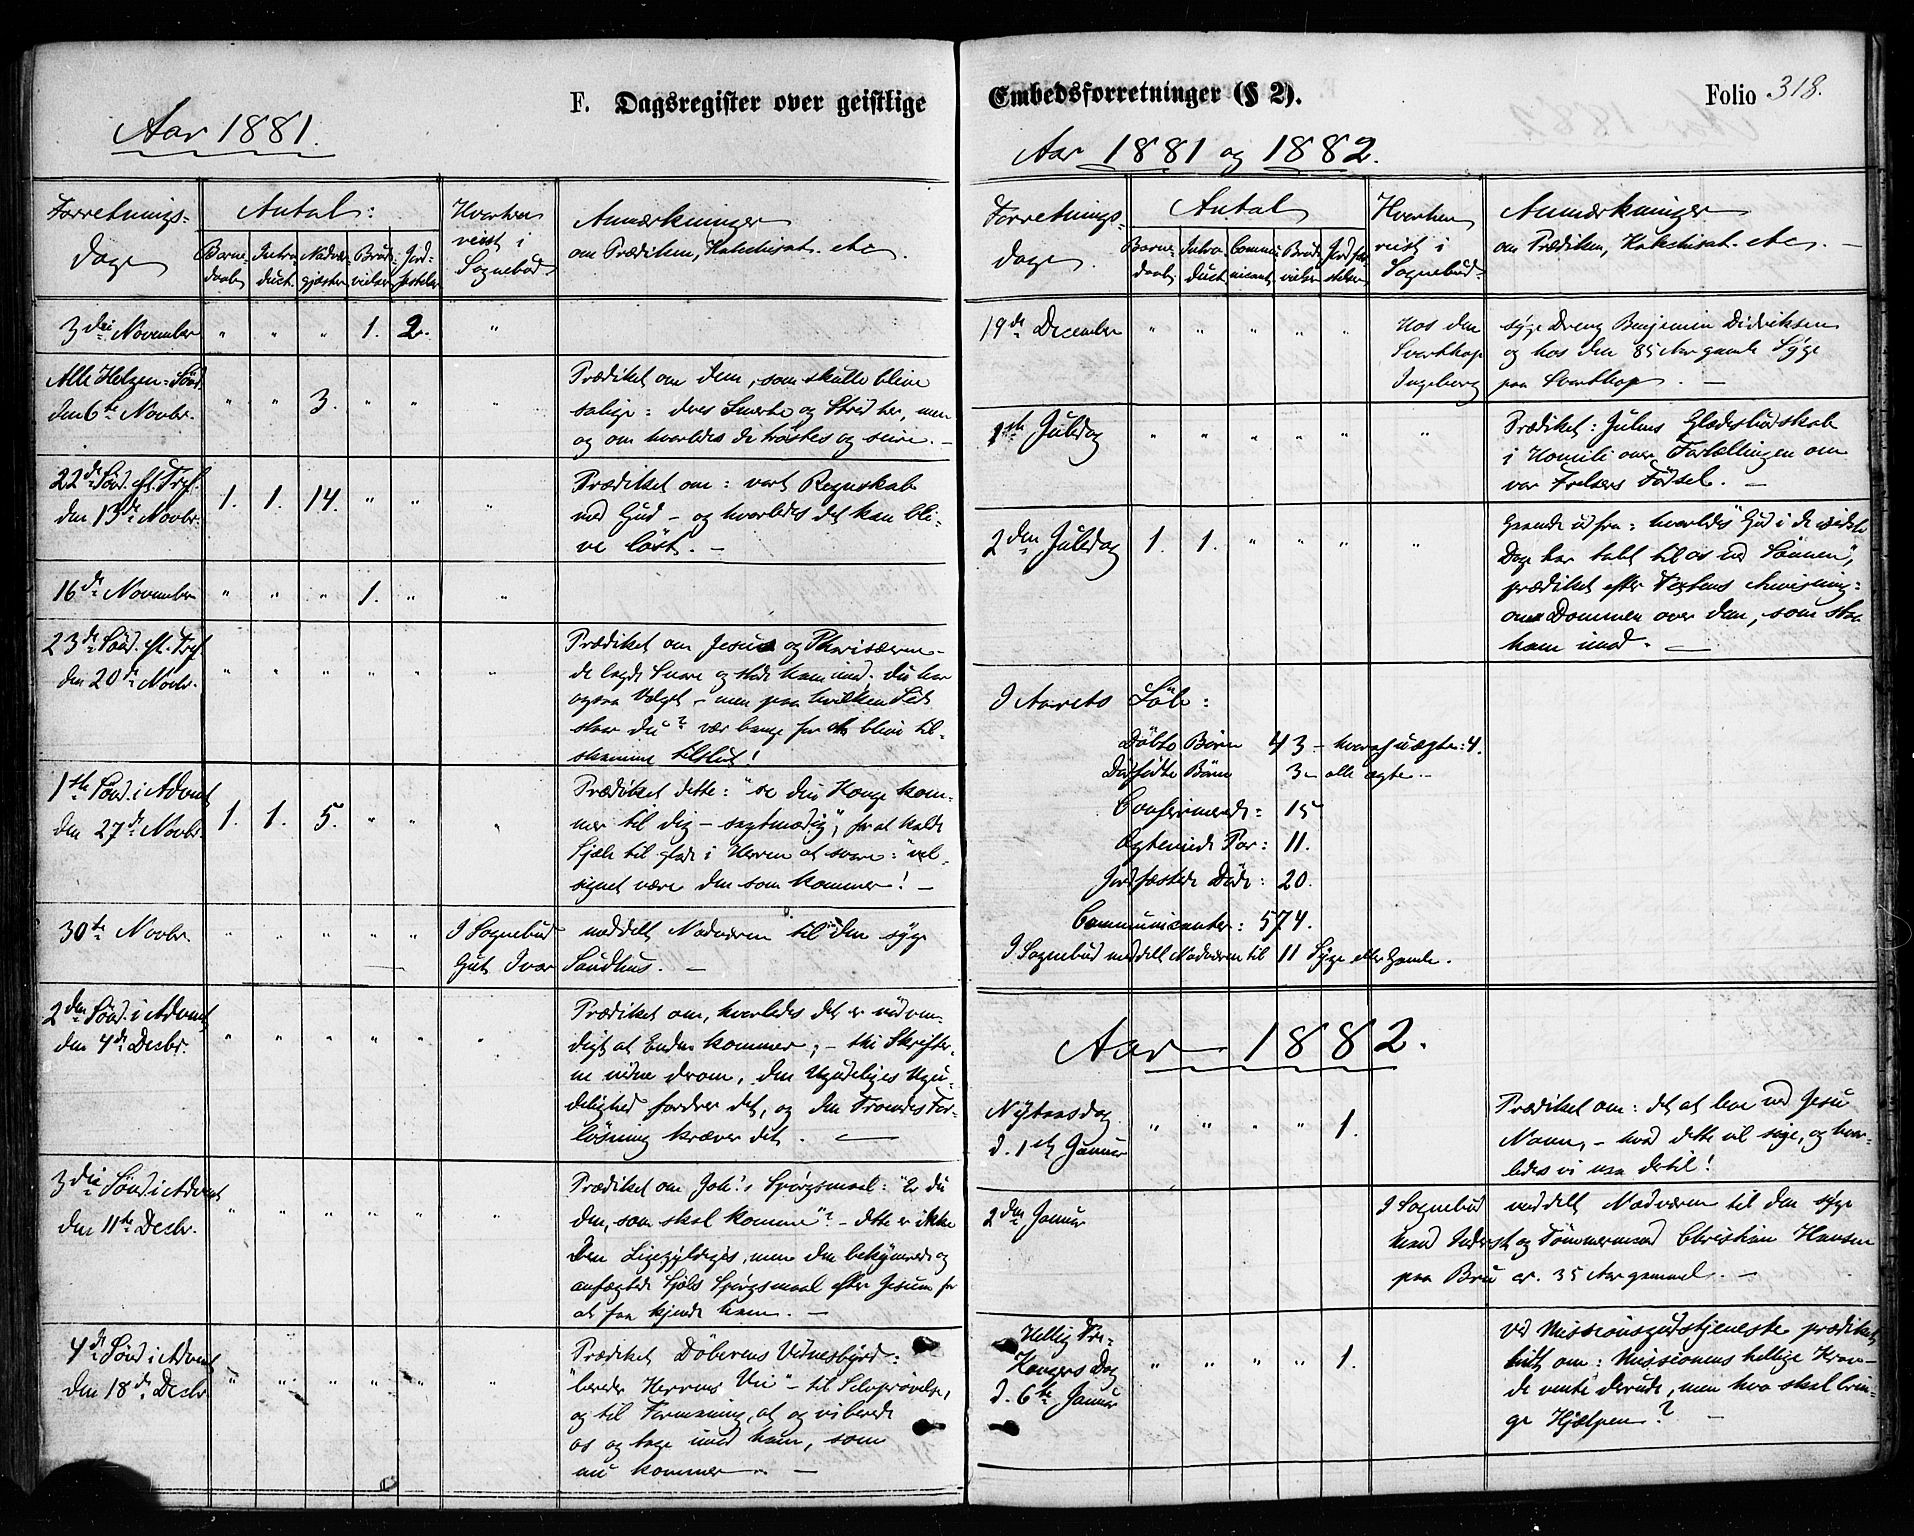 F. Dagsregister over geistlige
Aar 1881.
Forretnings-
dage
Antal:
Barne-
daab
Intro
duct.
Nadver
gjæster
Brud-
vielser
Jord-
fæstelser
Hvorhen
reist i
Sognebud
Anmærkninger
om Prædiken, Katechisat. etc.
3die November " " " 1. 2. "
Alle Helgen-Sönd.
den 6te Novbr. " " 3. " " "
Prædiket om dem, som skulle blive
salige: deres Smerte og Strid her, men
og om hvorledes de tröstes og seire. -
22de Sönd. eft. Tref.
den 13de Novbr. 1. 1. 14. " " "
Prædiket om: vort Regnskab
ved Gud - og hvorledes det kan bli-
ve löst. -
16de November " " " 1. " "
23de Sönd. eft. Tref.
den 20de Novbr. " " " " " "
Prædiket om Jesus og Pharisæerne -
de lagde Snare og stode ham imod. Du har
ogsaa Valget - men paa hvilken Side
staar du? vær bange for at blive til-
skamme tilslut!
1ste Sönd. i Advent
den 27de Novbr. 1. 1. 5. " " "
Prædiket dette: "se din Konge kom-
mer til dig - sagtmodig", for at kalde
Sjæle til glade i Herren at svare: "vel-
signet være den som kommer! -
30te Novbr. " " " " " I Sognebud meddelt Nadveren til den syge
Gut Ivar Sandhus. -
2den Sönd. i Advent
den 4de Decbr. " " " " " "
Prædiket om, hvorledes det er nödven-
digt at Enden kommer; - thi Skrifter-
ne vidne derom, den Ugudeliges Ugu-
delighed fordrer det, og den Troendes For-
lösning kræver det. -
3die Sönd i Advent
den 11te Decbr. " " " " " "
Prædiket om Joh's Spörgsmaal: "Er du
den, som skal komme"? - dette er ikke
den Ligegyldiges, men den bekymrede og
anfægtede Sjæls Spörgsmaal efter Jesum for
at faa kjende ham. -
4de Sönd i Advent
den 18de Decbr. " " " " " "
Prædiket Döberens Vidnesbyrd:
"bereder Herrens Vei" - til Selvprövelse,
og til Formaning, at og vi berede
os og tage imod ham, som
nu kommer. -
Embedsforretninger (§ 2).
Folio 318.
Aar 1881 og 1882.
Forretnings-
dage.
Antal
Barne-
daab
Intro-
duct.
Commu-
nicant.
Brud-
vielser
Jordfæ-
stelser
Hvorhen
reist i
Sognebud.
Anmærkninger
om Prædiken, Katechisat. etc. -
19de December " " " " " Hos den syge Dreng Benjamin Didriksen
Svarthop og hos den 85 Aar gamle Syge
Ingeborg paa Svarthop. -
1ste Juledag " " " " " "
Prædiket: Julens Glædesbudskab
i Homili over Fortællingen om
vor Frelsers Födsel. -
2den Juledag 1. 1. " " " "
Gaaende ud fra: hvorledes "Gud i de sidste
Dage har talt til os ved Sönnen",
prædiket efter Textens Anvisning:
om Dommen over dem, som staa
ham imod. -
I Aarets Löb:
Döbte Börn 43 - hvoraf uægte: 4.
Dödfödte Börn 3 - alle ægte. -
Confirmerede: 15
Ægteviede Par: 11.
Jordfæstede Döde: 20.
Communicanter: 574.
I Sognebud meddelt Nadveren til 11 Syge eller Gamle.
Aar 1882.
Nytaarsdag
d. 1ste Januar " " " " 1.
Prædiket om: det at leve ved Jesu
Navn, - hvad dette vil sige, og hvor-
ledes vi naa dertil!
2den Januar I Sognebud meddelt Nadveren til den syge
og Tömmermand Christian Hansen
paa Bru cr. 35 Aar gammel. -
Hellig Tre-
Kongers Dag
d. 6te Januar " " " " 1.
Ved Missionsgudstjeneste prædiket
om: Missionens hellige Krav -
de vente derude, men hvo skal brin-
ge Hjælpen? -